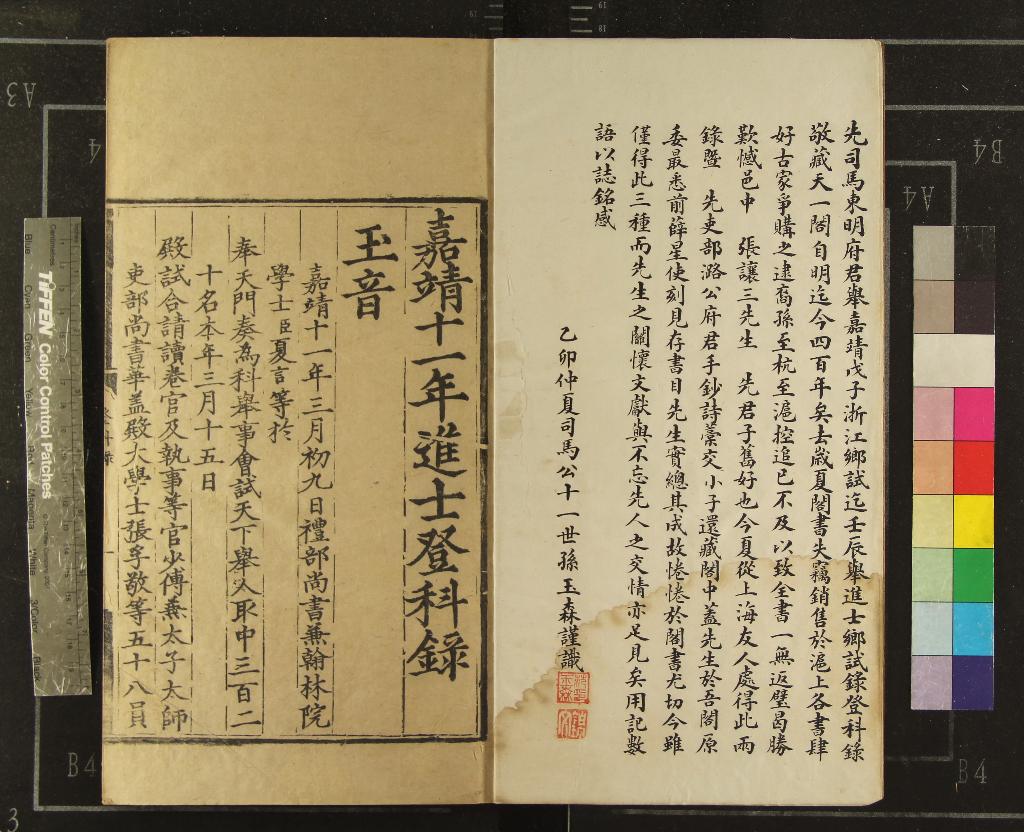 先司馬東明府君舉嘉靖戊子浙江鄉試迄壬辰舉進士鄉試錄登科錄
敬藏天一閣自明迄今四百年矣去歲夏閣書失竊銷售於滬上各書肆
好古家爭購之逮裔孫至杭至滬控追已不及以致全書一無返璧曷勝
歎憾邑中　張讓三先生　先君子舊好也今夏從上海友人處得此兩
錄暨　先吏部潞公府君手鈔詩藁交小子還藏閣中蓋先生於吾閣原
委最悉前薛星使刻見存書目先生實總其成故惓惓於閣書尤切今雖
僅得此三種而先生之關懷文獻與不忘先人之交情亦足見矣用記數
語以誌銘感
乙卯仲夏司馬公十一世孫玉森謹識
嘉靖十一年進士登科錄
玉音
嘉靖十一年三月初九日禮部尚書兼翰林院
學士臣夏言等於
奉天門奏為科舉事會試天下舉人取中三百二
十名本年三月十五日
殿試合請讀卷官及執事等官少傅兼太子太師
吏部尚書華蓋殿大學士張孚敬等五十八員
TIFFEN Color Control Patches
Blue
Cyan
Green
Yellow
Red
Magenta
White
3/Color
Black
Centimetres
A3
B4
A4
B4
B4
B4